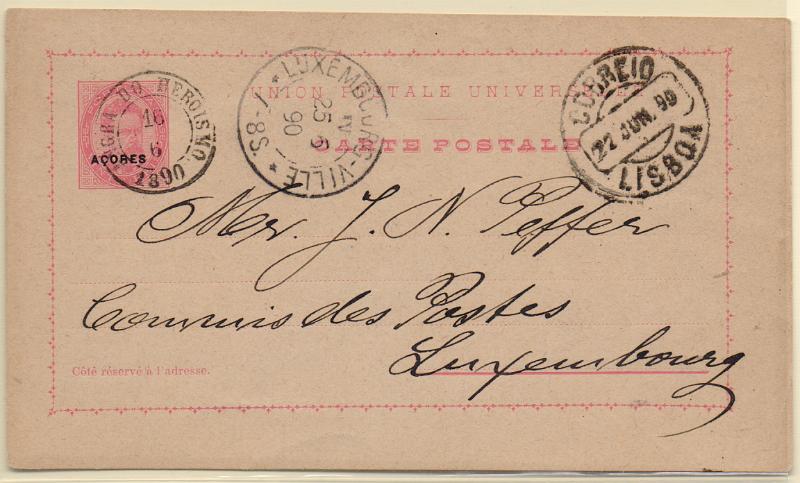 ANGRA DO HEROISMO
16
6
1890
AÇORES
LUXEMBOURG-VILLE
25 6
90
7-8S
CORREIO
27 JUN. 90
LISBOA
UNION POSTALE UNIVERSELLE
CARTE POSTALE
Mr. J. N. Peffer
Commis des Postes
Luxembourg
Côté réservé à l'adresse.